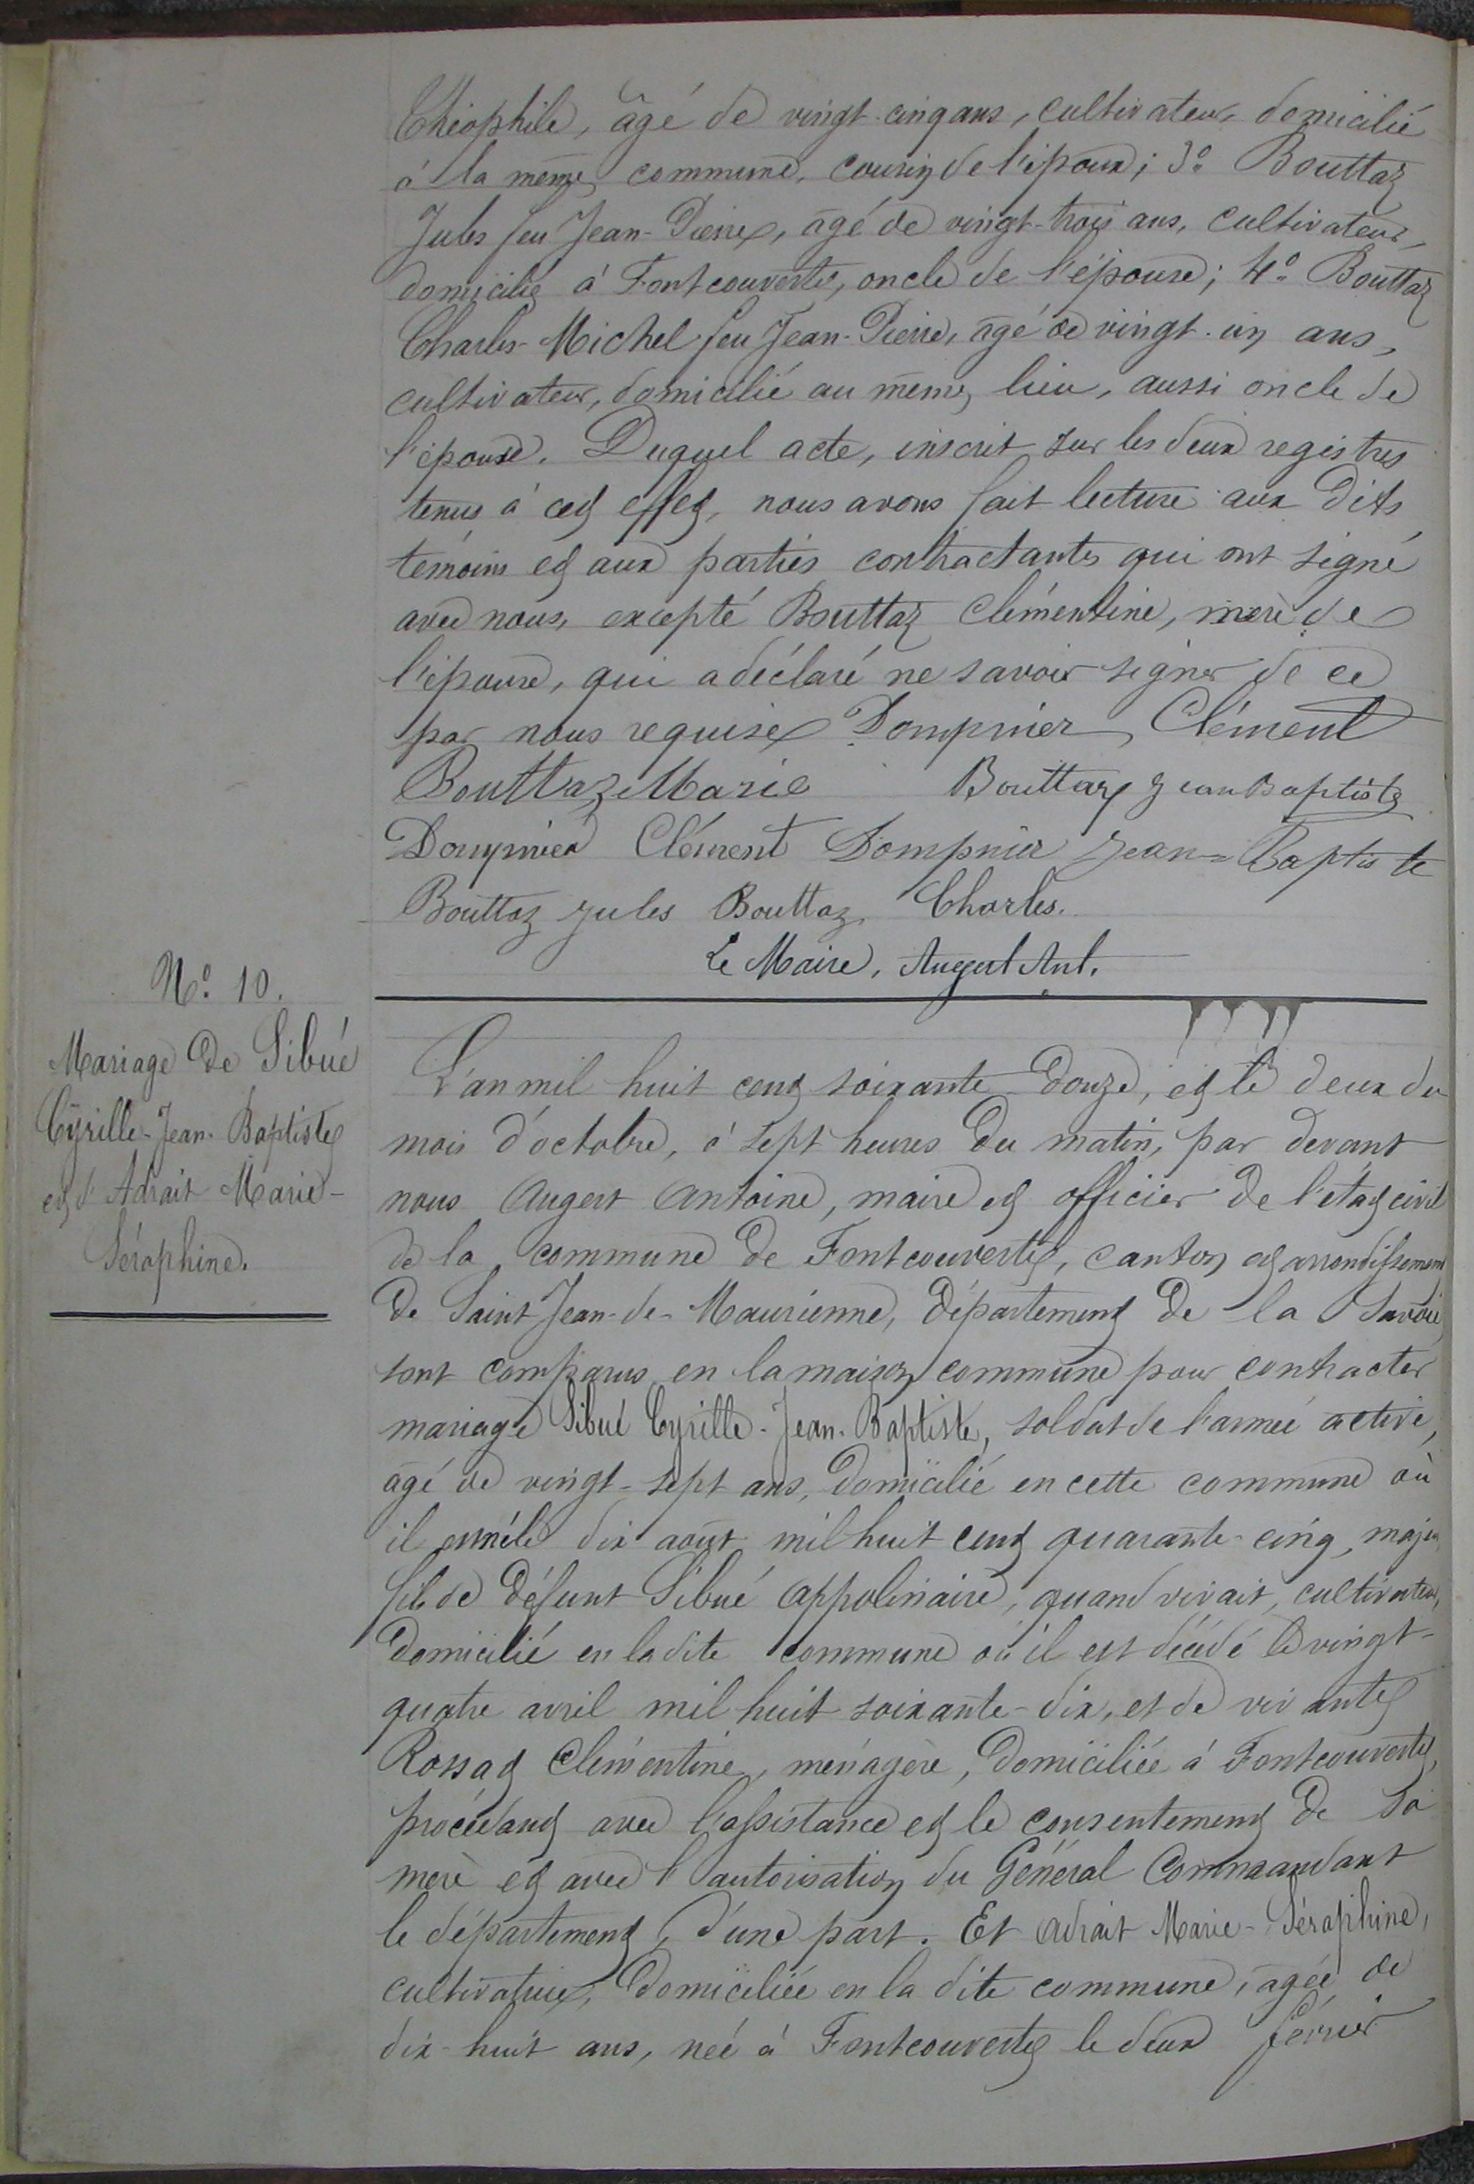 Théophile, âgé de vingt-cinq ans, cultivateur domicilié
à la même commune, cousin de l'époux; 3º Bouttaz
Jules feu Jean-Pierre, âgé de vingt-trois ans, cultivateur,
domicilié à Fontcouverte, oncle de l'épouse; 4º Bouttaz
Charles-Michel feu Jean-Pierre, âgé de vingt-un ans,
cultivateur, domicilié au même lieu, aussi oncle de
l'épouse. Duquel acte, inscrit sur les deux registres
tenus à cet effet, nous avons fait lecture aux dits
témoins et aux parties contractantes qui ont signé
avec nous, excepté Bouttaz Clémentine, mère de
l'épouse, qui a déclaré ne savoir signer de ce
par nous requise Dompnier Clément
Bouttaz Marie Bouttaz Jean Baptiste
Dompnier Clément Dompnier Jean=Baptiste
Bouttaz Jules Bouttaz Charles.
Le Maire, Augert Ant.
Nº 10.
Mariage de Sibué
Cyrille-Jean-Baptiste
et d'Adrait Marie-
Séraphine.
L'an mil huit cent soixante-douze, et le deux du
mois d'octobre, à sept heures du matin, par devant
nous Augert Antoine, maire et officier de l'état civil
de la commune de Fontcouverte, canton et arrondissement
de Saint Jean-de-Maurienne, département de la Savoie
sont comparus en la maison commune pour contracter
mariage Sibué Cyrille-Jean-Baptiste, soldat de l'armée active,
âgé de vingt-sept ans, domicilié en cette commune où
il est né le dix août mil huit cent quarante-cinq, majeur
fils de défunt Sibué Appolinaire, quand vivait, cultivateur,
domicilié en la dite commune où il est décédé le vingt-
quatre avril mil huit soixante-dix, et de vivante
Rossat Clémentine, ménagère, domiciliée à Fontcouverte,
procédant avec l'assistance et le consentement de sa
mère et avec l'autorisation du Général Commandant
le département, d'une part. Et Adrait Marie-Séraphine,
cultivatrice, domiciliée en la dite commune, âgée de
dix-huit ans, née à Fontcouverte le deux février